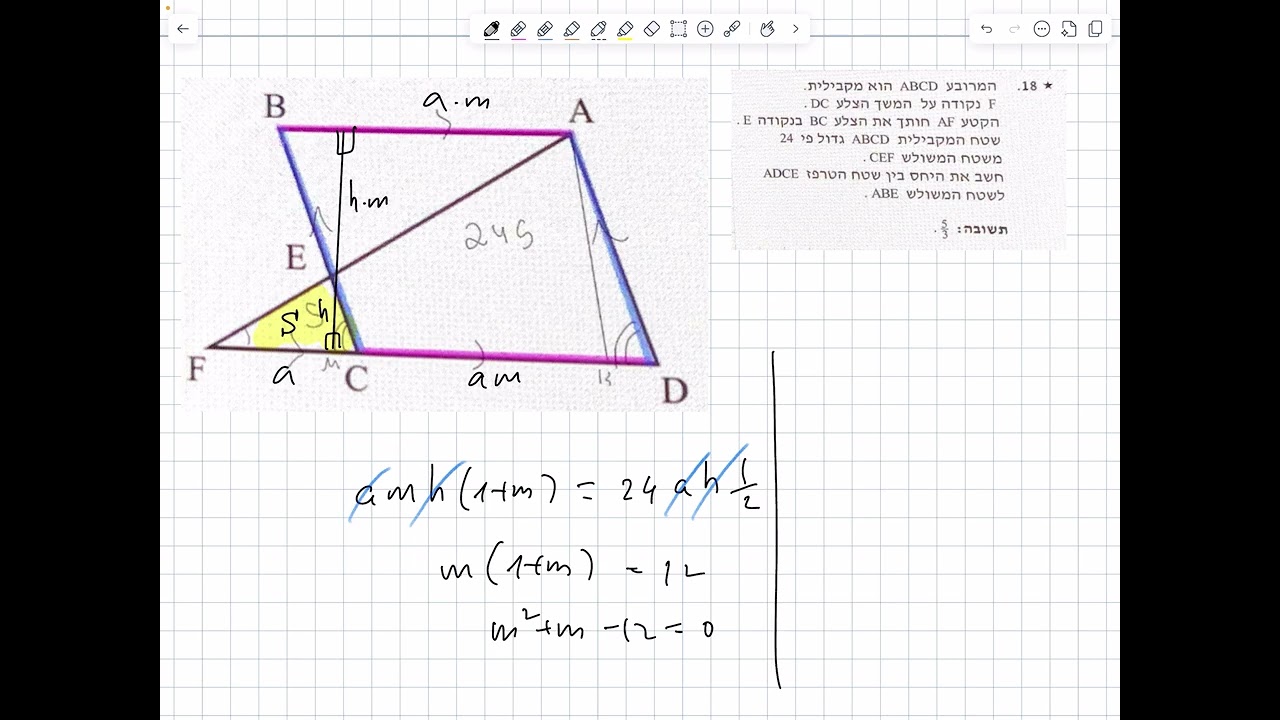 18. ★
המרובע ABCD הוא מקבילית.
F נקודה על המשך הצלע DC.
הקטע AF חותך את הצלע BC בנקודה E.
שטח המקבילית ABCD גדול פי 24
משטח המשולש CEF.
חשב את היחס בין שטח הטרפז ADCE
לשטח המשולש ABE.
תשובה: 5/3.
B
a·m
A
h·m
24S
E
S
h
F
a
M
C
am
K
D
amh(1+m) = 24ah 1/2
m(1+m) = 12
m²+m-12=0